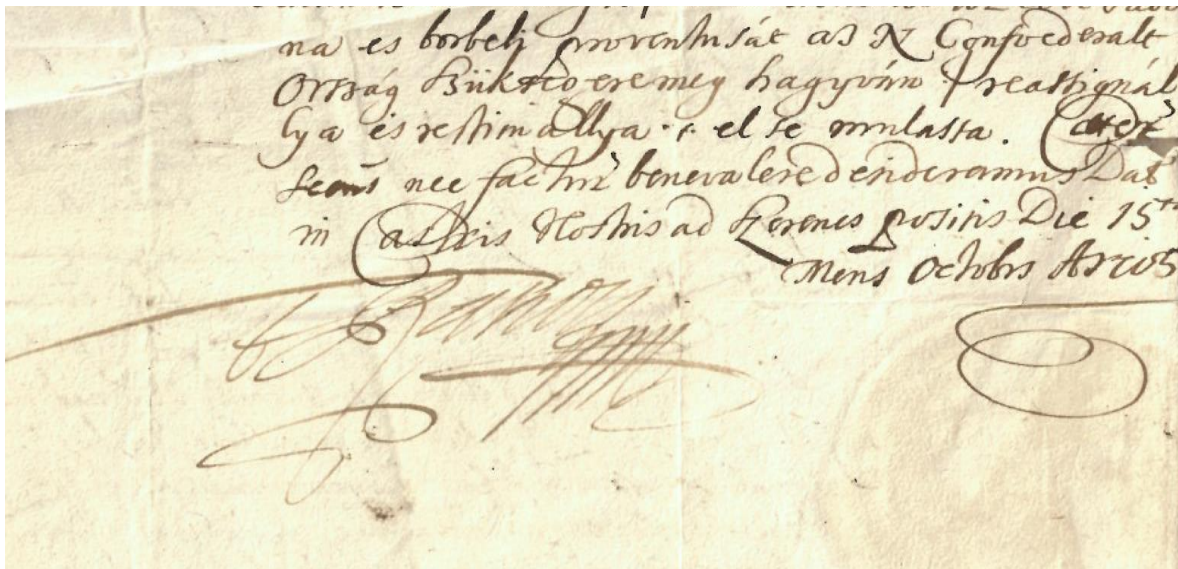 na es borbelj proventusát az N Confoederalt
Ország szükseg ere meg hagyván reassignál
lya és restimállya el se mulassa. Caeter
secus nec factur bene valere desideramus Dat
in Castris Nostris ad Szerencs positis Die 15
Mens Octobris A 1705